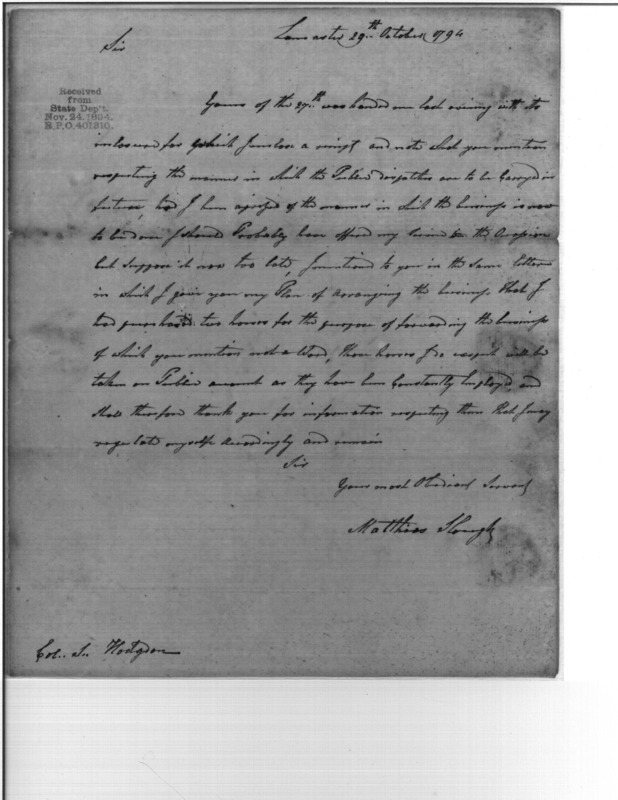 Lancaster 29th October 1794
Sir
Received
from
State Dep't.
Nov. 24, 1894.
R.P.O. 401310.
Yours of the 27th was handed me last evening with its
inclosures for which I inclose a receipt and note what you mention
respecting the manner in which the Public dispatches are to be Carryed in
future, had I been apprized of the manner in which the business is now
to be done I should Probably have offered my service on the Occasion
but suppose it now too late, I mentioned to you in the same letter
in which I gave you my Plan of arranging the business that I
had purchased two horses for the purpose of forwarding the business
of which you mention not a Word, these horses I do expect will be
taken on Public account as they have been Constantly Employed, and
shall therefore thank you for information respecting them that I may
regulate myself accordingly and remain
Sir
Your most Obedient Servant
Matthias Slough
Col. S. Hodgdon